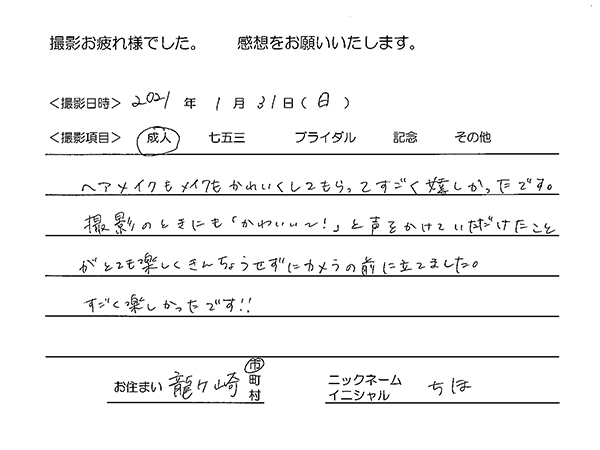 撮影お疲れ様でした。 感想をお願いいたします。
＜撮影日時＞ 2021 年 1 月 31 日 ( 日 )
＜撮影項目＞ 成人 七五三 ブライダル 記念 その他
ヘアメイクもメイクもかわいくしてもらってすごく嬉しかったです。
撮影のときにも「かわいい〜!」と声をかけていただけたこと
がとても楽しくきんちょうせずにカメラの前に立てました。
すごく楽しかったです!!
お住まい 龍ヶ崎 市 町 村 ニックネーム イニシャル ちほ